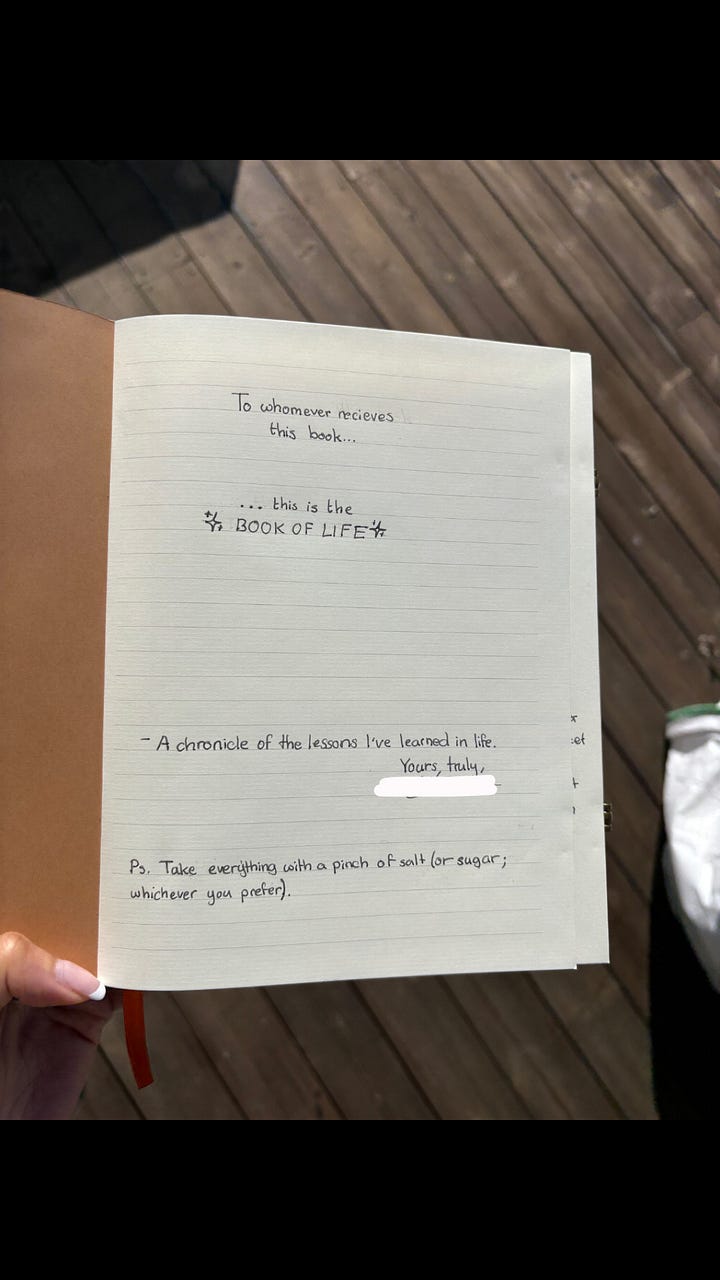 To whomever recieves
this book...
... this is the
BOOK OF LIFE
- A chronicle of the lessons I've learned in life.
Yours, truly,
Ps. Take everything with a pinch of salt (or sugar;
whichever you prefer).